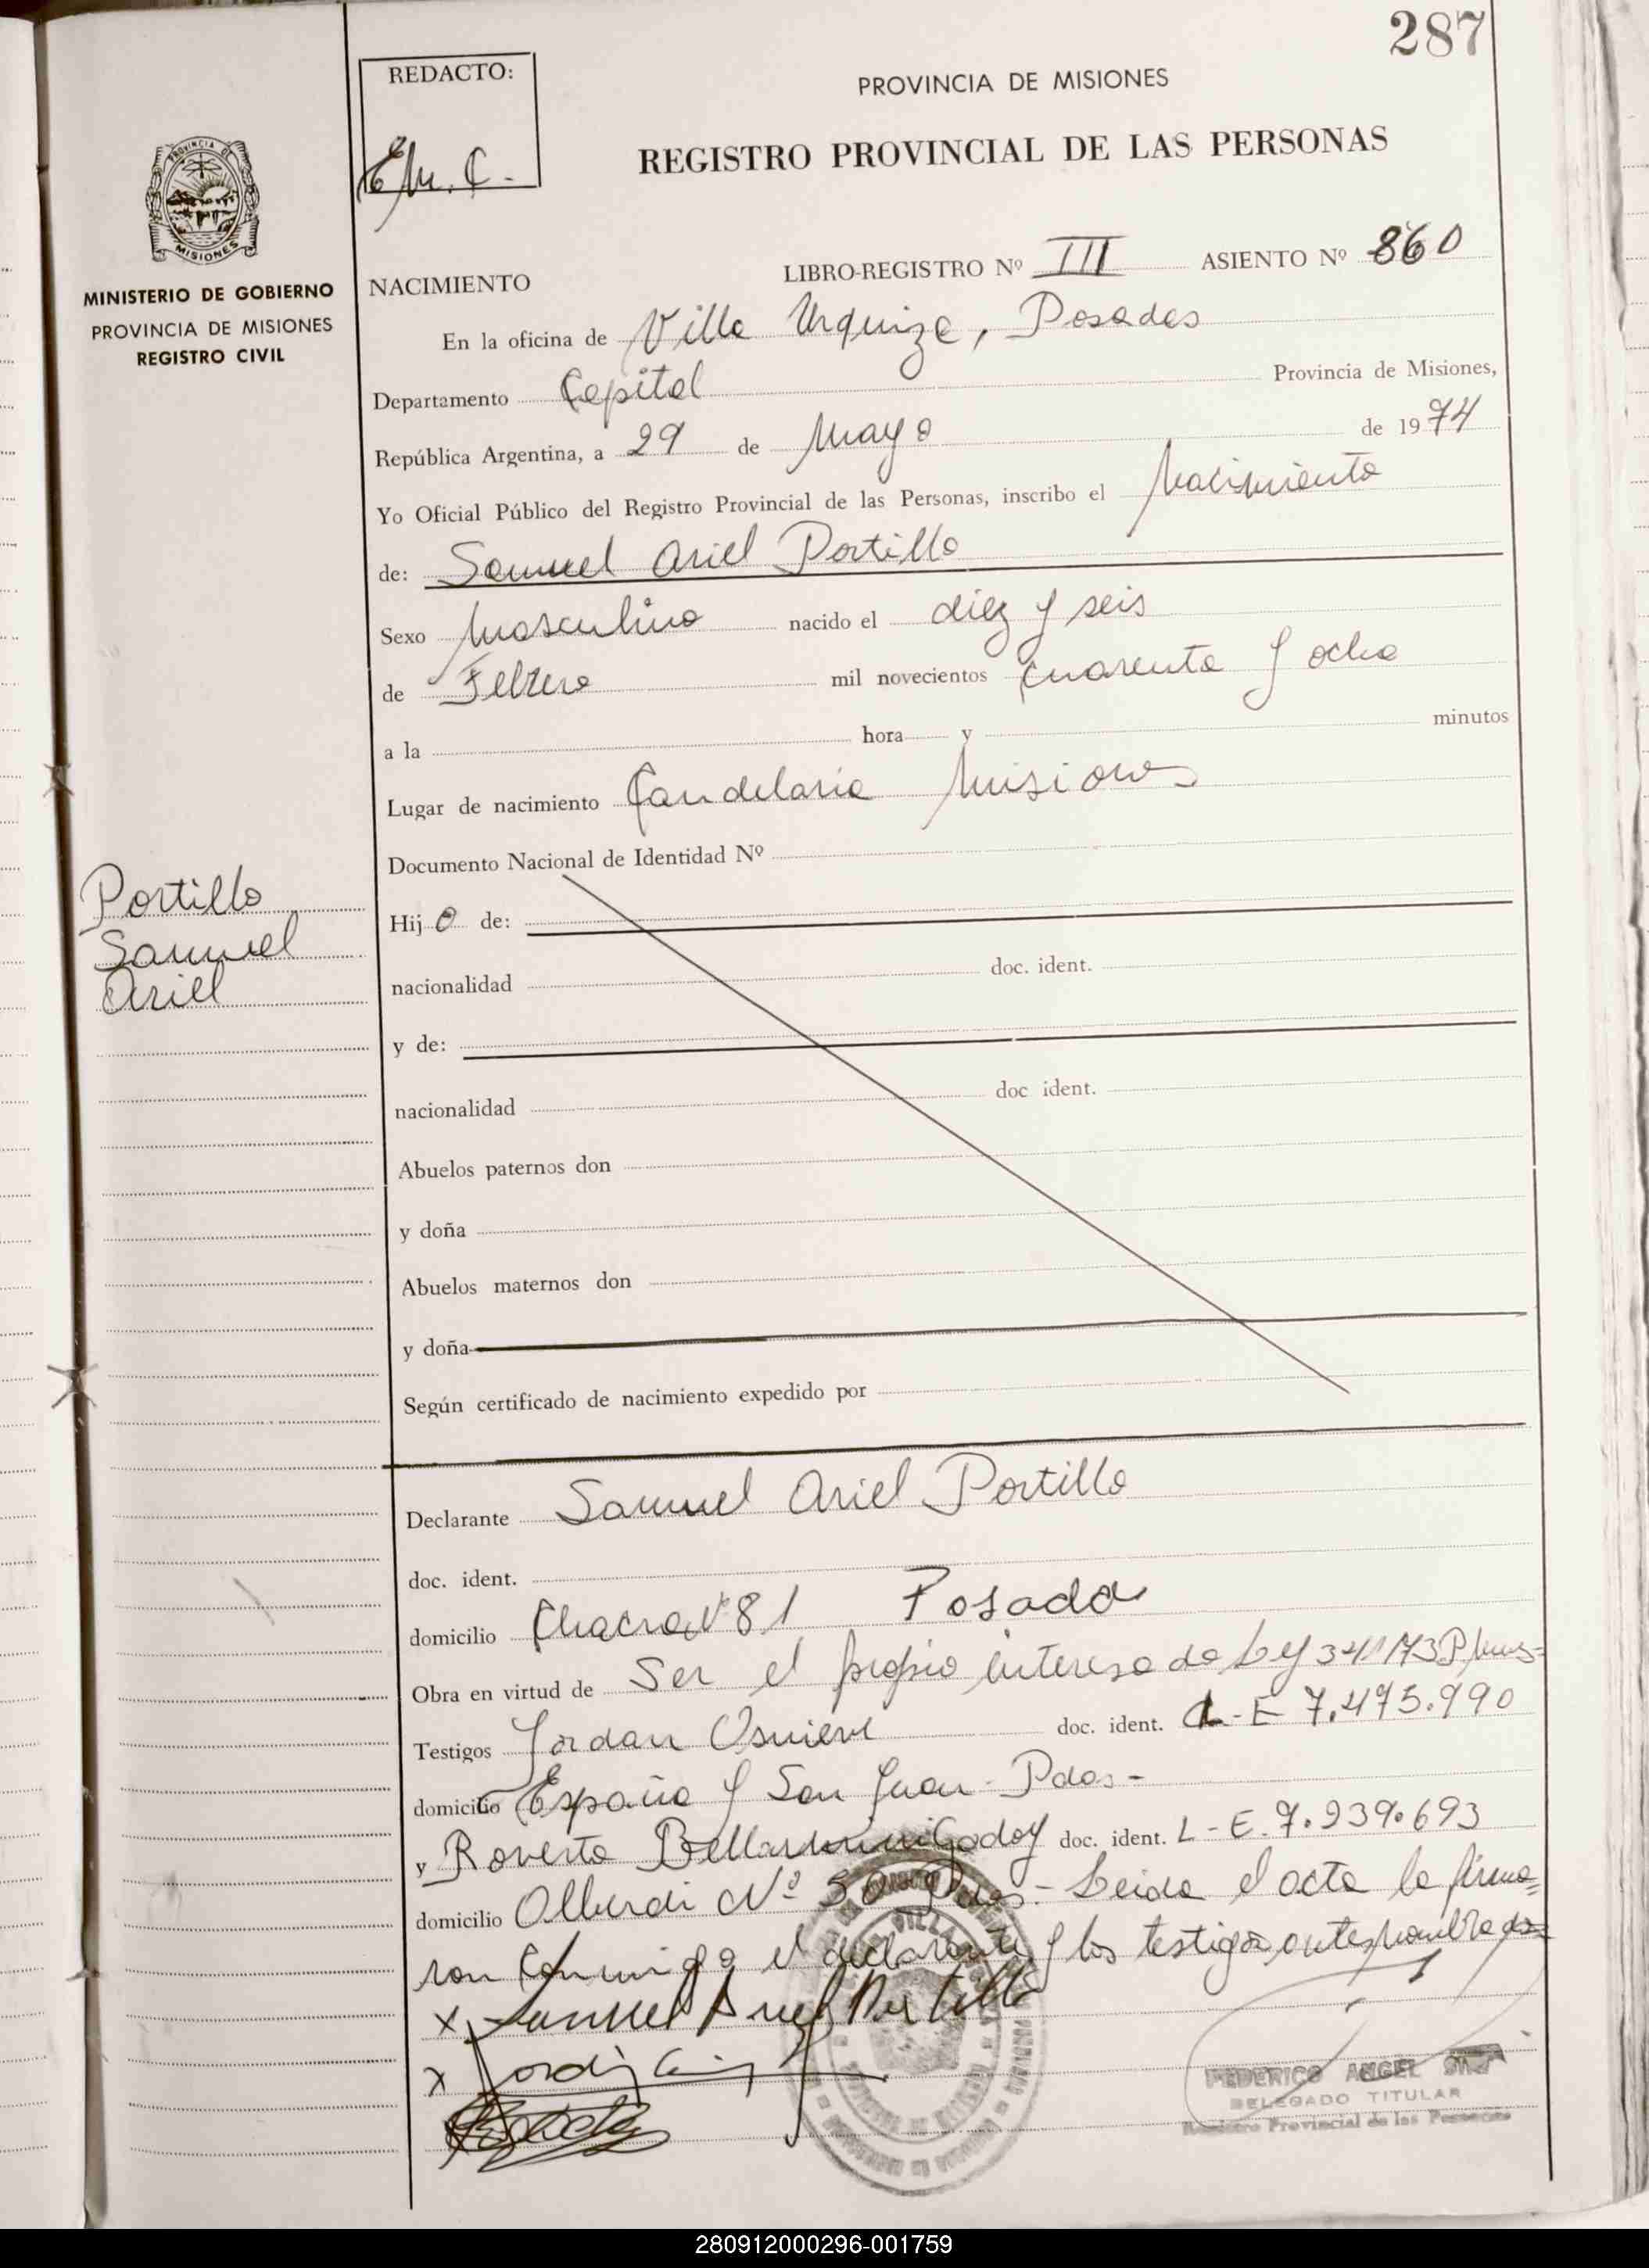 287
REDACTO:
E/M. C.
PROVINCIA DE MISIONES
REGISTRO PROVINCIAL DE LAS PERSONAS
PROVINCIA DE
MISIONES
MINISTERIO DE GOBIERNO
PROVINCIA DE MISIONES
REGISTRO CIVIL
NACIMIENTO LIBRO-REGISTRO Nº III ASIENTO Nº 860
En la oficina de Villa Urquiza, Posadas
Departamento Capital Provincia de Misiones,
República Argentina, a 29 de Mayo de 1974
Yo Oficial Público del Registro Provincial de las Personas, inscribo el Nacimiento
de: Samuel Ariel Portillo
Sexo Masculino nacido el diez y seis
de Febrero mil novecientos cuarenta y ocho
a la hora y minutos
Lugar de nacimiento Candelaria Misiones
Documento Nacional de Identidad Nº
Portillo
Samuel
Ariel
Hij o de:
nacionalidad doc. ident.
y de:
nacionalidad doc ident.
Abuelos paternos don
y doña
Abuelos maternos don
y doña
Según certificado de nacimiento expedido por
Declarante Samuel Ariel Portillo
doc. ident.
domicilio Chacra Nº 81 Posadas
Obra en virtud de Ser el propio interesado Ley
Testigos Jordan doc. ident. L-E 7.475.990
domicilio España y San Juan - Pdas -
y Roverto Bellarmini Godoy doc. ident. L-E. 7.939.693
domicilio Alberdi Nº Pdas.- Leida el acta la firma=
ron conmigo el declarante y los testigos antes nombrados
x Samuel Ariel Portillo
x
FEDERICO ANGEL
DELEGADO TITULAR
Registro Provincial de las Personas
280912000296-001759